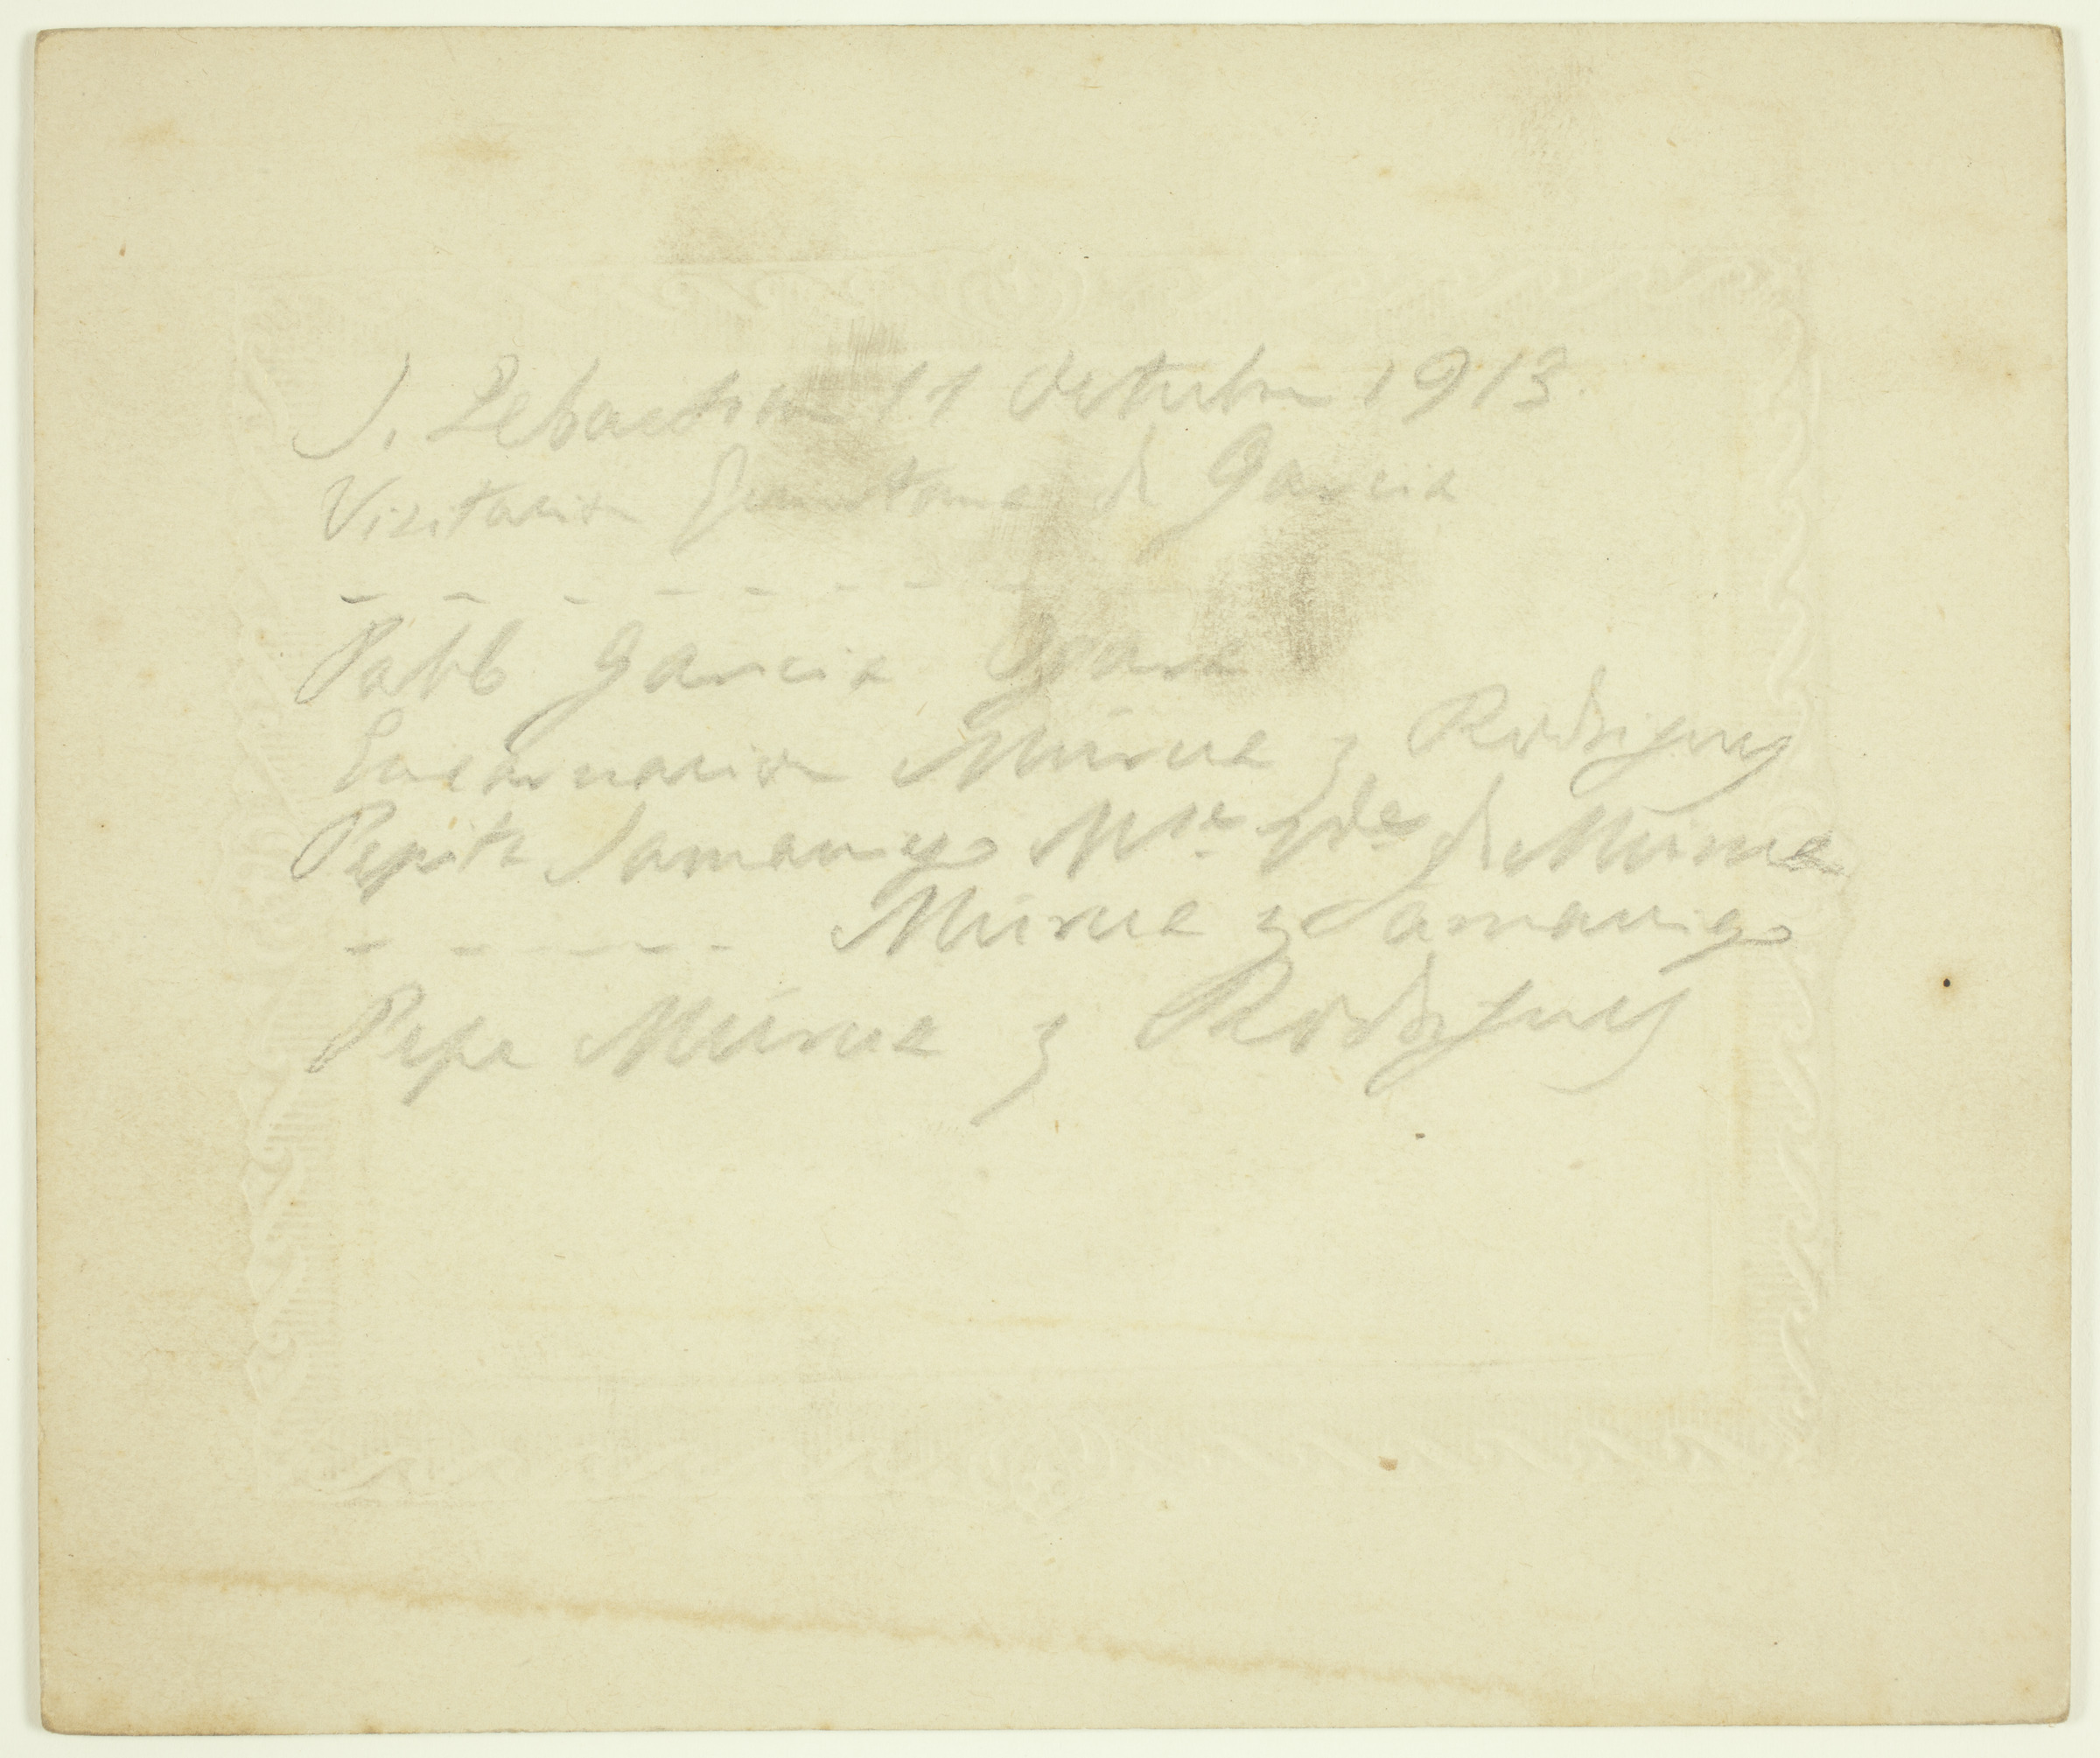 S. Sebastian 11 Octubre 1913.
Visitacion Quintana de Garcia
- - - - - - - -
Pablo Garcia
Encarnacion Múrua y Rodriguez
Pepita Samaniego de Múrua
- - - - - Múrua y Samaniego
Pepe Múrua y Rodriguez